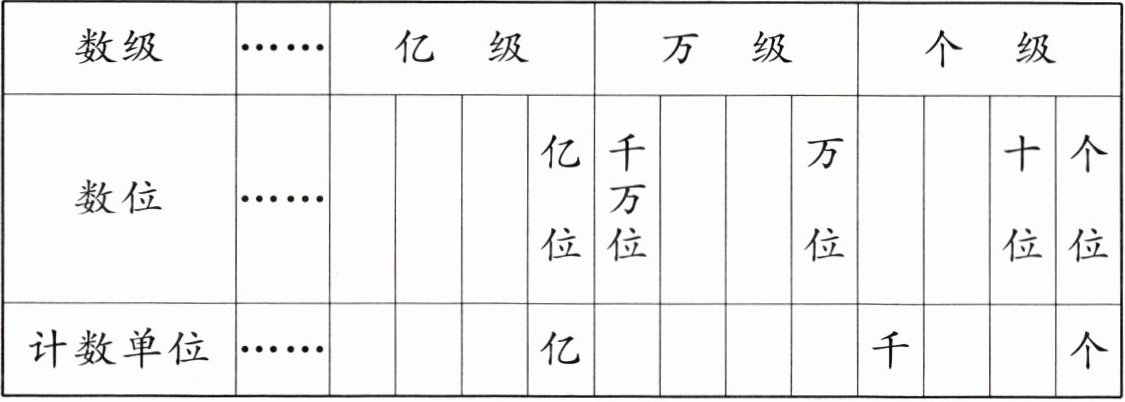 数级 …… 亿 级 万 级 个 级
数位 …… 亿位 千万位 万位 十位 个位
计数单位 …… 亿 千 个